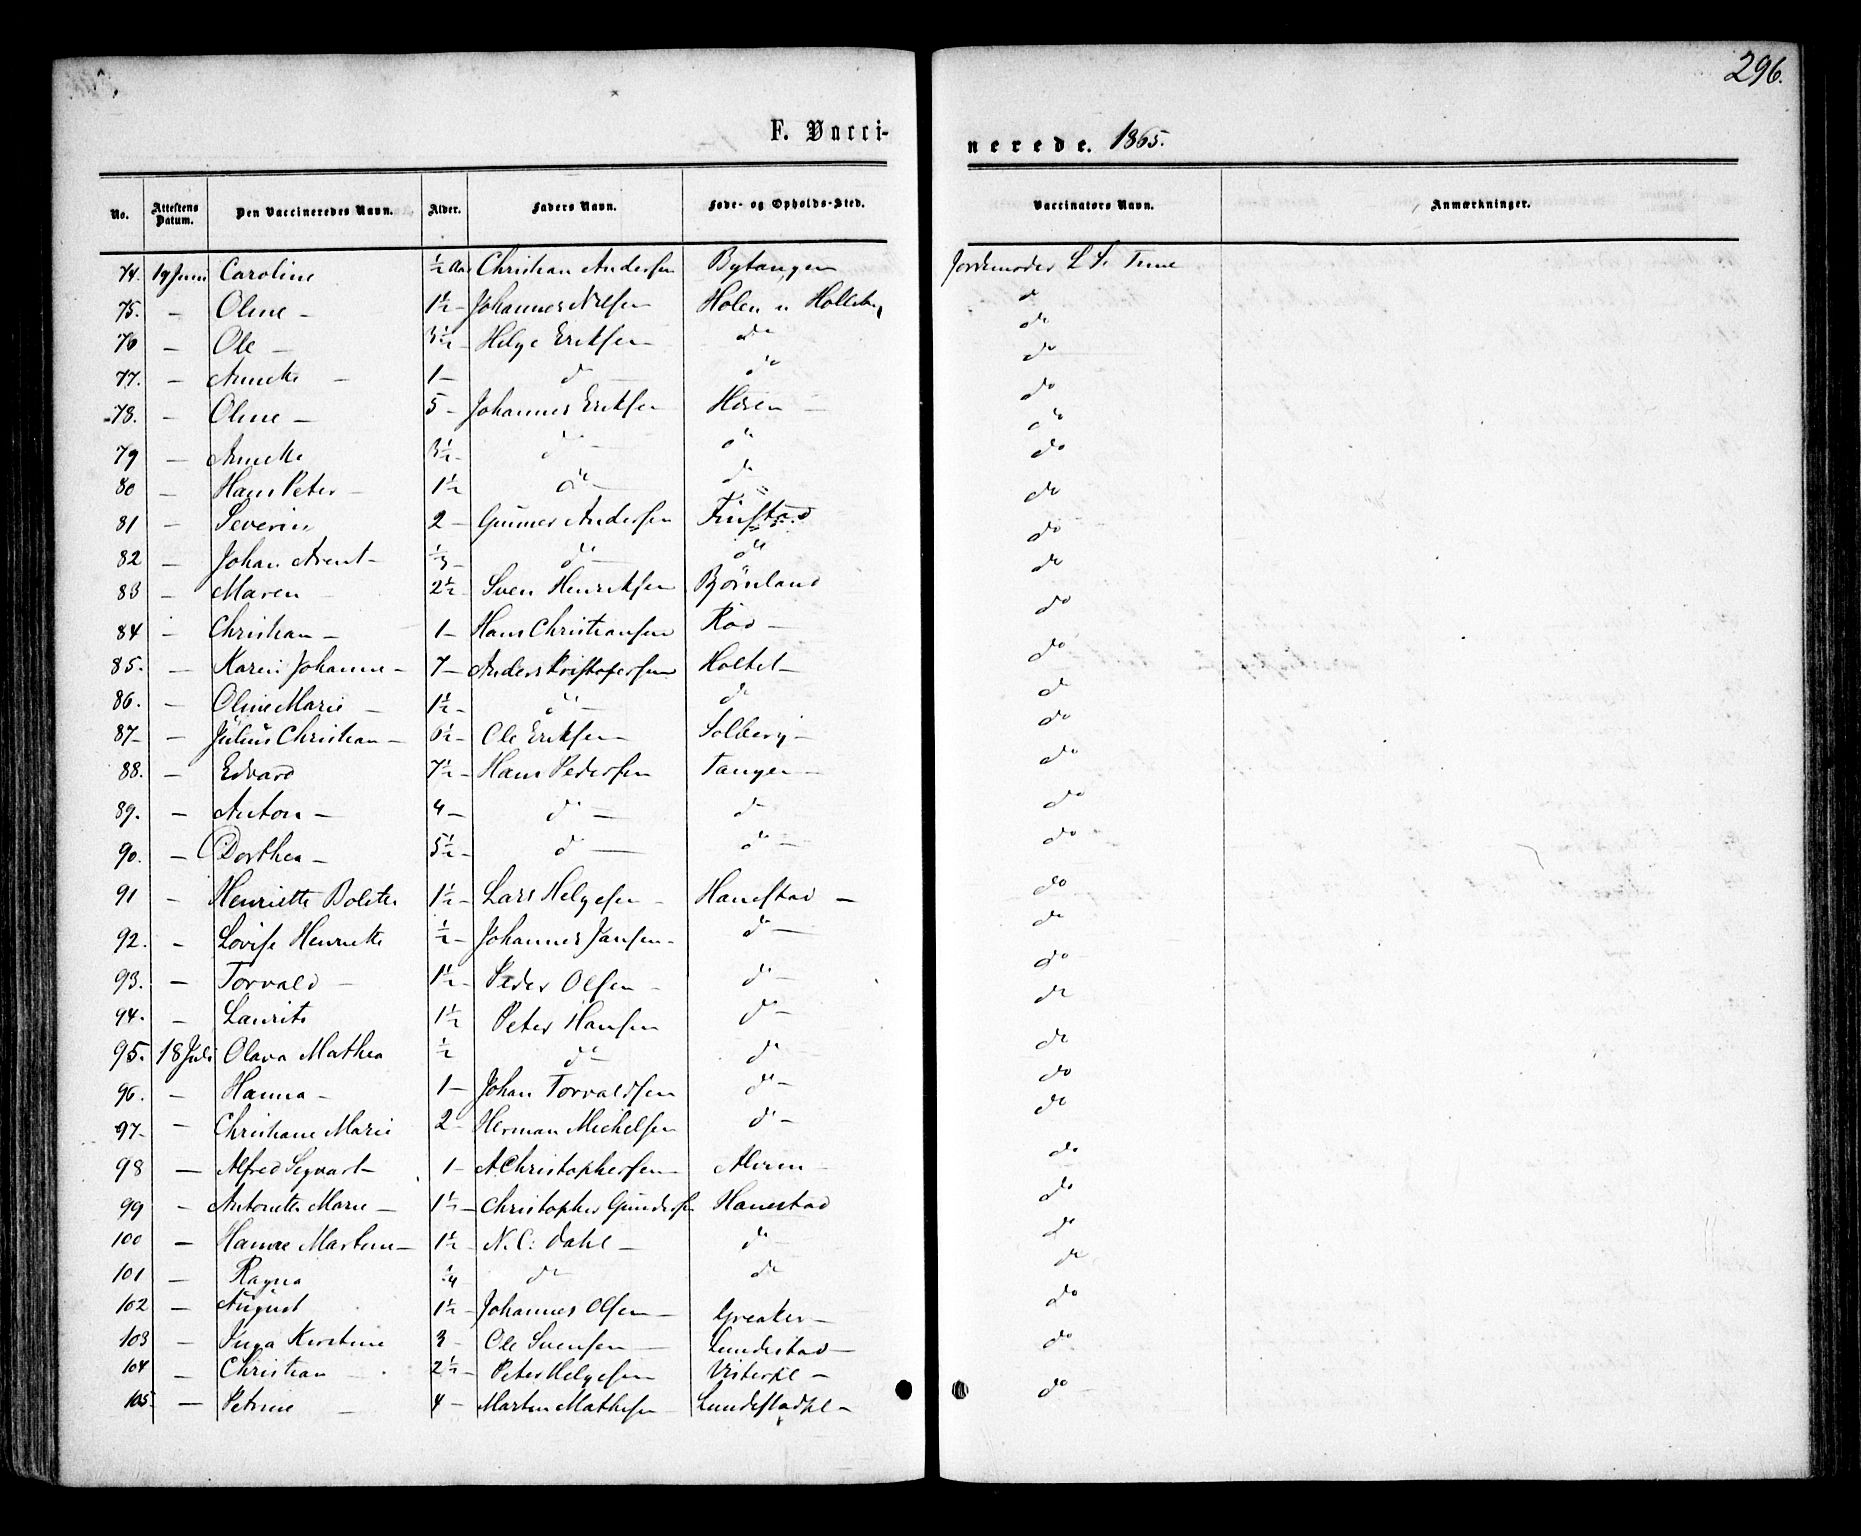 296.
F. Vacci- nerede. 1865.
No. Attestens Datum. Den Vaccineredes Navn. Alder. Faders Navn. Føde- og Opholds-Sted. Vaccinators Navn. Anmærkninger.
74. 19 Juni Caroline ½ Aar Christian Andersen Bytangen Jordemoder L. S. Tune
75. - Oline - 1½ - Johannes Nilsen Holen u Holleby do
76 - Ole - 3½ - Helge Eriksen do do
77. - Annette - 1 - do do do
78. - Oline - 5 - Johannes Eriksen Hisen do
79 - Annette 3½ do do do
80 - Hans Peter - 1½ do do do
81 - Severin 2 - Gunner Andersen Finstad do
82 - Johan Arent - ⅓ - do do do
83 - Maren 2½ - Sven Henriksen Bjørnland do
84 - Christian - 1 - Hans Christiansen Röd - do
85. - Karen Johanne - 7 - Anders Kristofersen Holtet - do
86. - Oline Marie - 1½ - do do do
87 - - Julius Christian - 6½ - Ole Eriksen - Solberg - do
88. - Edvard 7½ - Hans Pedersen Tangen - do
89. - Anton - 4 - do - do do
90. - Dorthea - 5½ - do - do - do
91 - Henriette Bolette 1½ - Lars Helgesen - Hanestad - do
92. - Lovise Henriette ½ - Johannes Jansen - do - do
93. - Torvald - 1½ - Peder Olsen - do - do
94. - Laurits 1½ Peter Hansen do - do
95. 18 Juli Olava Mathea ½ do do do
96. - Hanna - 1 - Johan Torvaldsen do - do
97 - - Christiane Marie 2 - Herman Michelsen do - do
98 - Alfred Segvart - 1 - A Christophersen - Alvim - do
99 - Antonette Marie - 1½ - Christopher Gundersen Hanestad do
100 - Hanna Martine - 1½ - N. C: Dahl - do - do
101 - Ragna ¼ - do do do
102 - August 1½ - Johannes Olsen - Greaker - do
103 - Inga Kirstine 3 - Ole Svensen - Lundestad - do
104 - Christian - 2½ - Peter Helgesen Visterpl -
105. - Petrine - 4 - Martin Mathisen Lundestadpl - do -